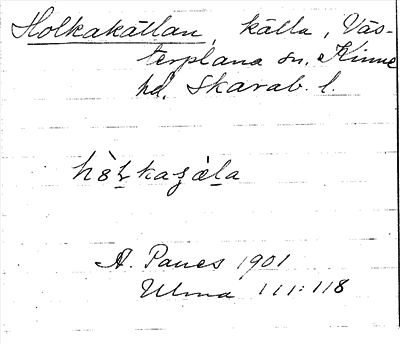 Holkakällan, källa, Väs-
terplana sn. Kinne
hd. Skarab. l.
A. Paues 1901
Ulma 111:118